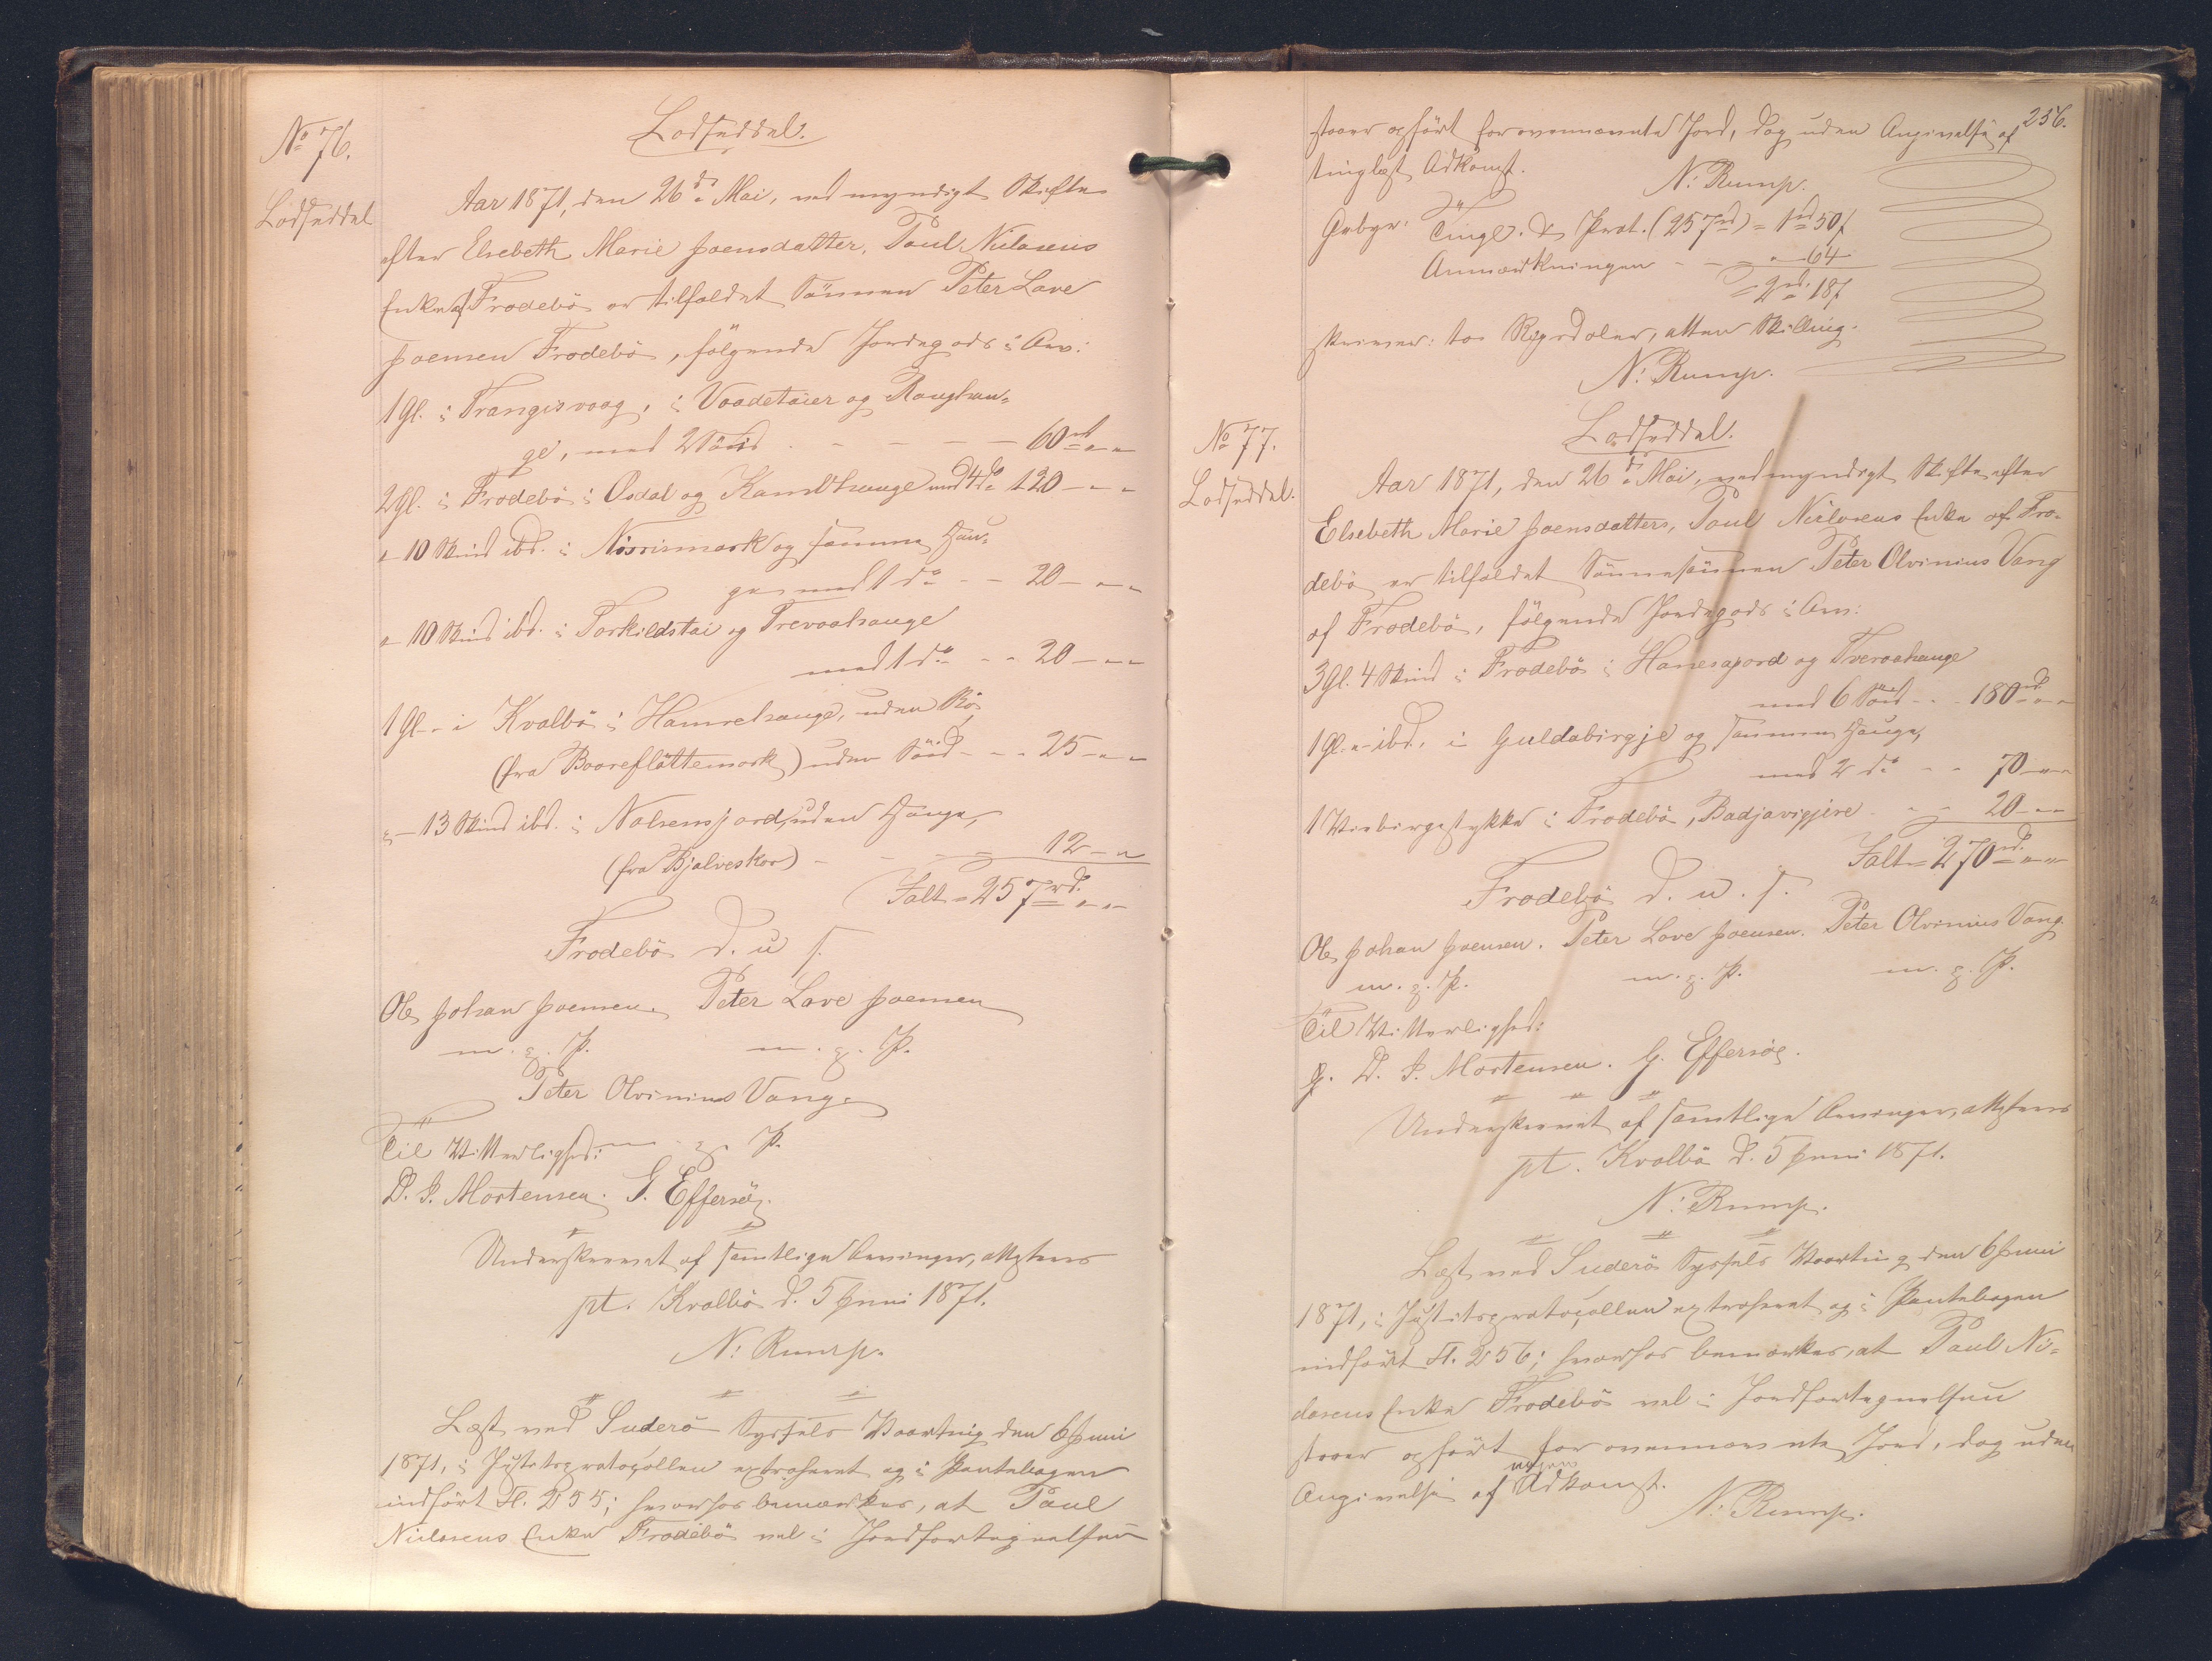 No 76.
Lodseddel
Lodseddel.
Aar 1871, den 26de Mai, ved myndigt Skifte
efter Elsebeth Marie Joensdatter, Poul Niclasens
Enke af Frodebö er tilfaldet Sönnen Peter Lave
Joensen Frodebö, fölgende Jordegods i Arv:
1 Gl. i Trangisvaag, i Vaadetaier og Roughau-
ge, med 2 Söud - - - - 60rd " "
2 Gl. i Frodebö i Osdal og Kamb hauge med 4 do 120 - " "
" 10 Skind ibd. i Nörrismark og samme Hau-
ge med 1 do - - 20 - " "
" 10 Skind ibd. i Torkildstai og Trevaahauge
med 1 do - - 20 - " "
1 Gl. - i Kvalbö i Hamrehauge, uden Rö
(fra Booreflöttemark) uden Söud - - - 25 - " "
" - 13 Skind ibd. i Nolsensjord, uden Hauge,
(fra Bjalveskor) - - - - 12 - "
Ialt = 257rd " "
Frodebö d. u. s.
Ole Johan Joensen. Peter Lave Joensen
m. g. P. m. g. P.
Peter Olvinius Vang.
Til Vitterlighed: m. g. P.
D. P. Mortensen. G. Effersöe.
Underskrevet af samtlige Arvinger, attesteres
pt. Kvalbö d. 5 Juni 1871.
N: Rump.
Læst ved Suderö Syssels Vaarting den 6 Juni
1871, i Justitsprotocollen extraheret og i Pantebogen
indfört Fl. 255; hvorhos bemærkes, at Poul
Niclasens Enke Frodebö vel i Jordfortegnelsen
256.
staaer opfört for ovennævnte Jord, dog uden Angivelse af
tinglæst Adkomst.
N: Rump.
Gebyr: Tingl. & Prot. (257rd) = 1rd 50 s
Anmærkningen - - - " - 64
= 2rd 18 s
skriver: to Rigsdaler, atten Skilling.
N: Rump.
No 77.
Lodseddel.
Lodseddel.
Aar 1871, den 26de Mai, ved myndigt Skifte efter
Elsebeth Marie Joensdatters, Poul Niclasens Enke af Fro-
debö er tilfaldet Sönnesönnen Peter Olvinius Vang
af Frodebö, fölgende Jordegods i Arv:
3 Gl. 4 Skind i Frodebö i Hanesajord og Tveraahauge
med 6 Söud - - 180rd " "
1 Gl. " ibd. i Guldabirgje og samme Hauge,
med 2 do - - 70 - " "
1 Urebirgestykke i Frodebö, Badjavigjere - - 20 - "
Ialt = 270rd " "
Frodebö d. u. s.
Ole Johan Joensen. Peter Lave Joensen. Peter Olvinius Vang.
m. g. P. m. g. P. m. g. P.
Til Vitterlighed:
D. P. Mortensen. G. Effersöe.
Underskrevet af samtlige Arvinger, attesteres
pt. Kvalbö d. 5 Juni 1871.
N: Rump.
Læst ved Suderö Syssels Vaarting den 6 Juni
1871, i Justitsprotocollen extraheret og i Pantebogen
indfört Fl. 256; hvorhos bemærkes, at Poul Ni-
clasens Enke Frodebö vel i Jordfortegnelsen
staaer opfört for ovennævnte Jord, dog uden
Angivelse af Adkomst.
N: Rump.